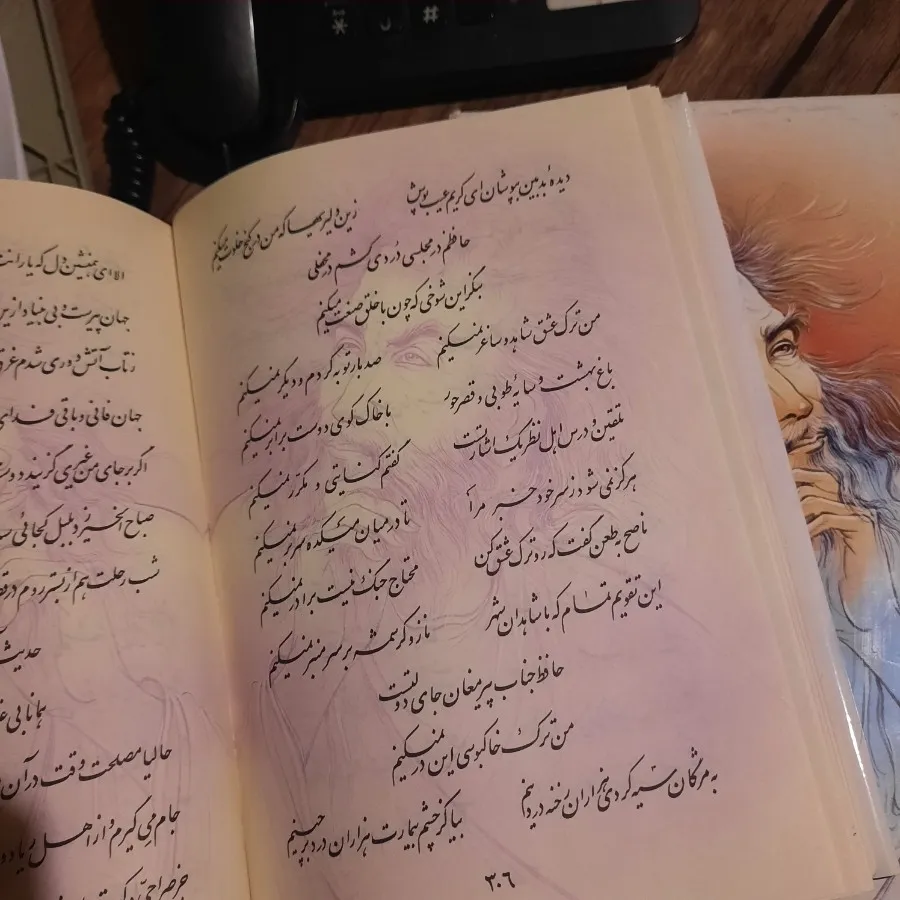 دیدهٔ بدبین بپوشان ای کریم عیب پوش زین دلیریها که من در کنج خلوت میکنم
حافظم در مجلسی دُردی کشم در محفلی
بنگر این شوخی که چون با خلق صنعت میکنم
من ترک عشق شاهد و ساغر نمیکنم صد بار توبه کردم و دیگر نمیکنم
باغ بهشت و سایهٔ طوبی و قصر حور با خاک کوی دوست برابر نمیکنم
تلقین و درس اهل نظر یک اشارتست گفتم کنایتی و مکرر نمیکنم
هرگز نمی شود ز سر خود خبر مرا تا در میان میکده سر بر نمیکنم
ناصح به طعن گفت که رو ترک عشق کن محتاج جنگ نیست برادر نمیکنم
این تقویم تمام که با شاهدان شهر ناز و کرشمه بر سر منبر نمیکنم
حافظ جناب پیر مغان جای دولتست
من ترک خاکبوسی این در نمیکنم
به مژگان سیه کردی هزاران رخنه در دینم بیا کز چشم بیمارت هزاران درد برچینم
۳۰۶
الا ای همنشین دل که یارانت
جهان پیرست و بی بنیاد ازین
ز تاب آتش دوری شدم غرق
جهان فانی و باقی فدای
اگر بر جای من غیری گزیند دوست
صباح الخیر زد بلبل کجائی
شب رحلت هم از بستر روم در
حدیث
همانا بی
حالیا مصلحت وقت در آن
جام می گیرم و از اهل ریا
جز صراحی
* #